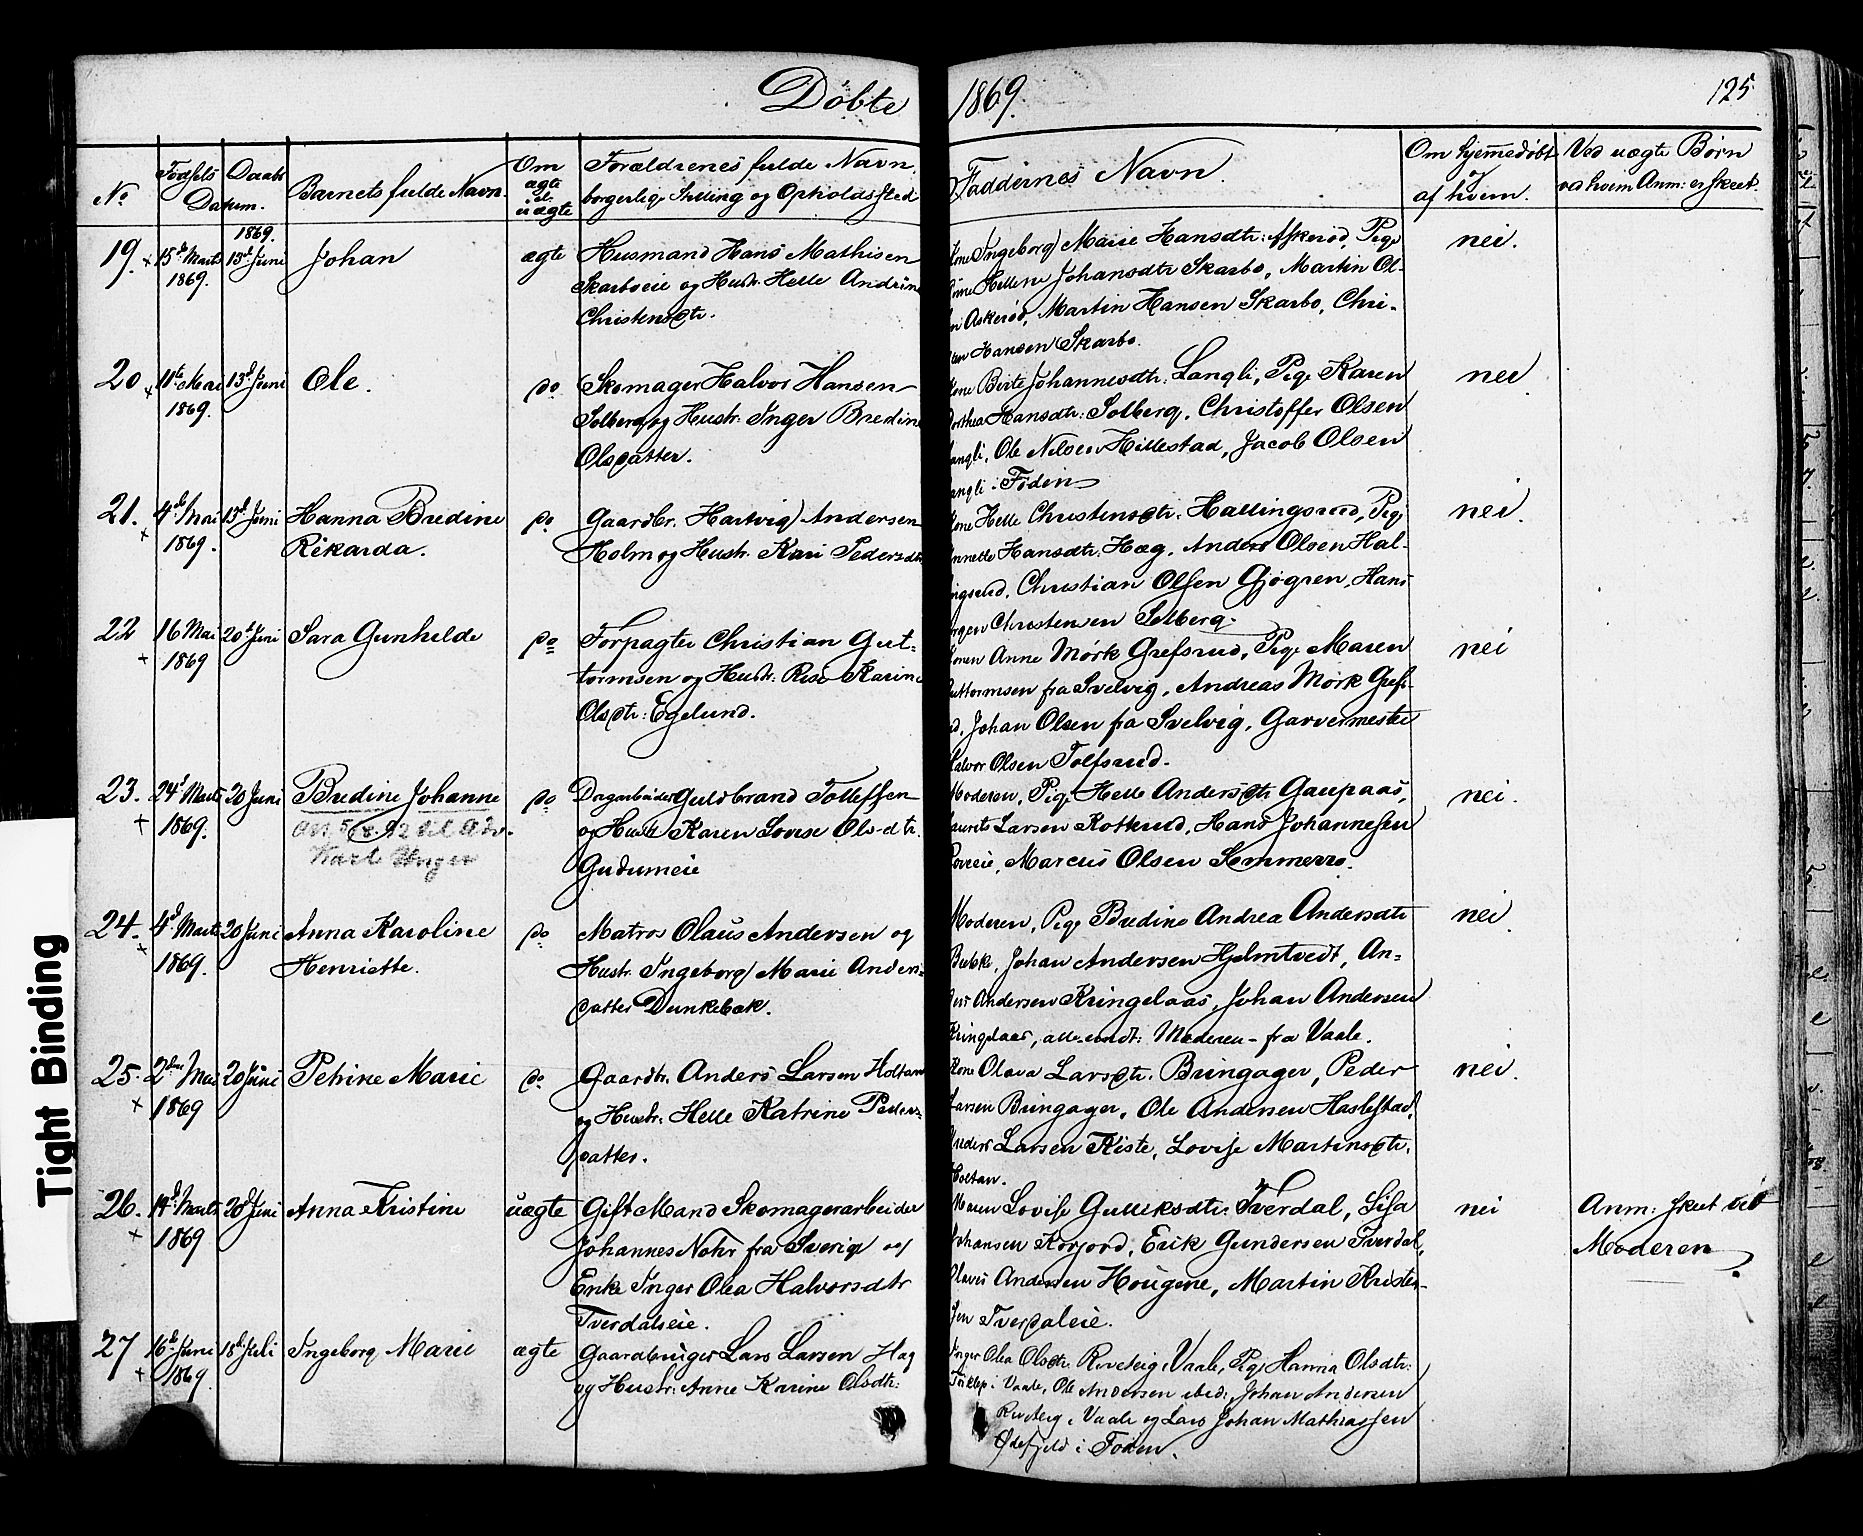 Døbte 1869. 125
No
Fødsels Daabs
Datum.
Barnets fulde Navn.
Om
ægte
el.
uægte
Forældrenes fulde Navn,
borgerlige Stilling og Opholdssted
Faddernes Navn.
Om hjemmedøbt
og
af hvem.
Ved uægte Børn
ved hvem Anm: er skeet.
1869.
19. 15de Marts 13de Juni Johan ægte Husmand Hans Mathisen
1869. Skarboeie og Hustr. Helle Andrine
Christensdtr.
Kone Ingeborg Marie Hansdtr: Askerød, Pige
Helene Johansdtr Skarbo, Martin Ol-
Askerød, Martin Hansen Skarbo, Chri-
Hansen Skarbo.
nei.
20 11te Mai 13de Juni Ole. do Skomager Halvor Hansen
1869. Solberg og Hustr: Inger Bredine
Olsdatter.
Kone Berte Johannesdtr: Langli, Pige Karen
Dorthea Hansdtr: Solberg, Christoffer Olsen
Langli, Ole Nilsen Hillestad, Jacob Olsen
Langli
nei.
21. 4de Mai 13de Juni Hanna Bredine do Gaardbr. Hartvig Andersen
1869. Rikarda. Holm og Hustr. Kari Pedersdtr
Kone Helle Christensdtr. Hallingsrud, Pige
Hansdtr. Hæg, Anders Olsen Hal-
lingsrud, Christian Olsen Gjøgren, Hans
Jørgen Christensen Solberg.
nei.
22 16 Mai 20de Juni Sara Gunhilde do Forpagter Christian Gut-
1869 tormsen og Hustr: Karine
Olsdtr: Egelund.
Konen Anne Mørk Grefsrud, Pige Maren
Guttormsen fra Svelvig, Andreas Mørk Grefs-
rud, Johan Olsen fra Svelvig, Garvermester
Halvor Olsen Tolfsrud.
nei
23. 24de Marts 20 Juni Bredine Johanne do Dagarbeider Guldbrand Tolleffsen
1869. og Hustr Karen Lovise Ols-dtr.
Karl Unger
Gudumeie
Moderen, Pige Helle Andersdtr Gaupaas,
Laurits Larsen Rotterud, Hans Johannesen
Marcus Olsen Sommerro.
nei.
24. 4de Marts 20 Juni Anna Karoline do Matros Olaus Andersen og
1869. Henriette. Hustr. Ingeborg Marie Anders-
datter Dunkebæk.
Moderen, Pige Bredine Andrea Andersdtr
Johan Andersen Hjelmtvedt, An-
ders Andersen Kringelaas, Johan Andersen
Kringelaas, alle undt: Moderen - fra Vaale.
nei.
25. 2den Mai 20 Juni Petrine Marie do Gaardbr. Anders Larsen Holtan
1869 og Hustr. Helle Katrine Peders-
datter.
Kone Olava Larsdtr. Bringager, Peder
Larsen Bringager, Ole Andersen Haslestad,
Anders Larsen Kiste, Lovise Martinsdtr.
Holtan.
nei.
26. 14de Marts 20de Juni Anna Kristine uægte Gift Mand Skomagerarbeider
1869 Johannes Nohr fra Sverige og
Enke Inger Olea Halvorsdtr
Tverdalseie.
Maren Lovise Gulliksdtr: Tverdal, Lisa
Johansen Korjord, Erik Gundersen Tverdal,
Olaves Andersen Hougene, Martin Kristen-
sen Tverdaleie.
nei Anm: skeet ved
Moderen.
27 16de Juni 18de Juli Ingeborg Marie ægte Gaardbruger Lars Larsen Hag
1869 og Hustr: Anne Karine Olsdtr:
Inger Olea Olsdtr. Vaale, Pige Hanna Olsdtr:
i Vaale, Ole Andersen ibid: Johan Andersen
i Vaale og Lars Johan Mathiassen
Ødefjeld i Foden.
Tight Binding